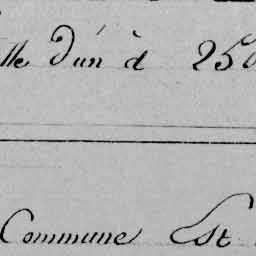 lle d'un d 25
Commune Est